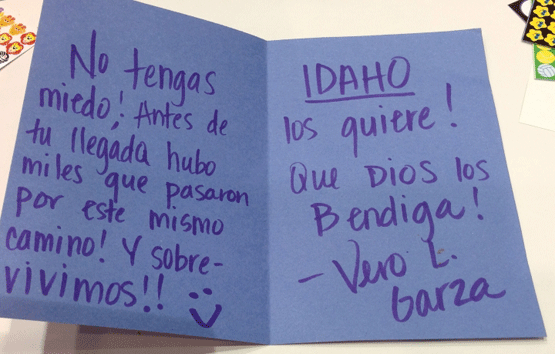 No tengas
miedo! Antes de
tu llegada hubo
miles que pasaron
por este mismo
camino! Y sobre-
vivimos!!
IDAHO
los quiere!
Que DIOS los
Bendiga!
- Vero L.
Garza